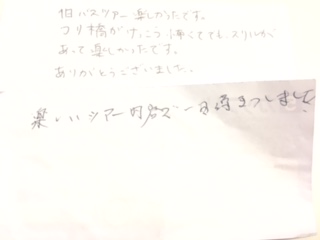 1日バスツアー楽しかったです。
つり橋がけっこう怖くてでもスリルが
あって楽しかったです。
ありがとうございました。
楽しいツアー
しました